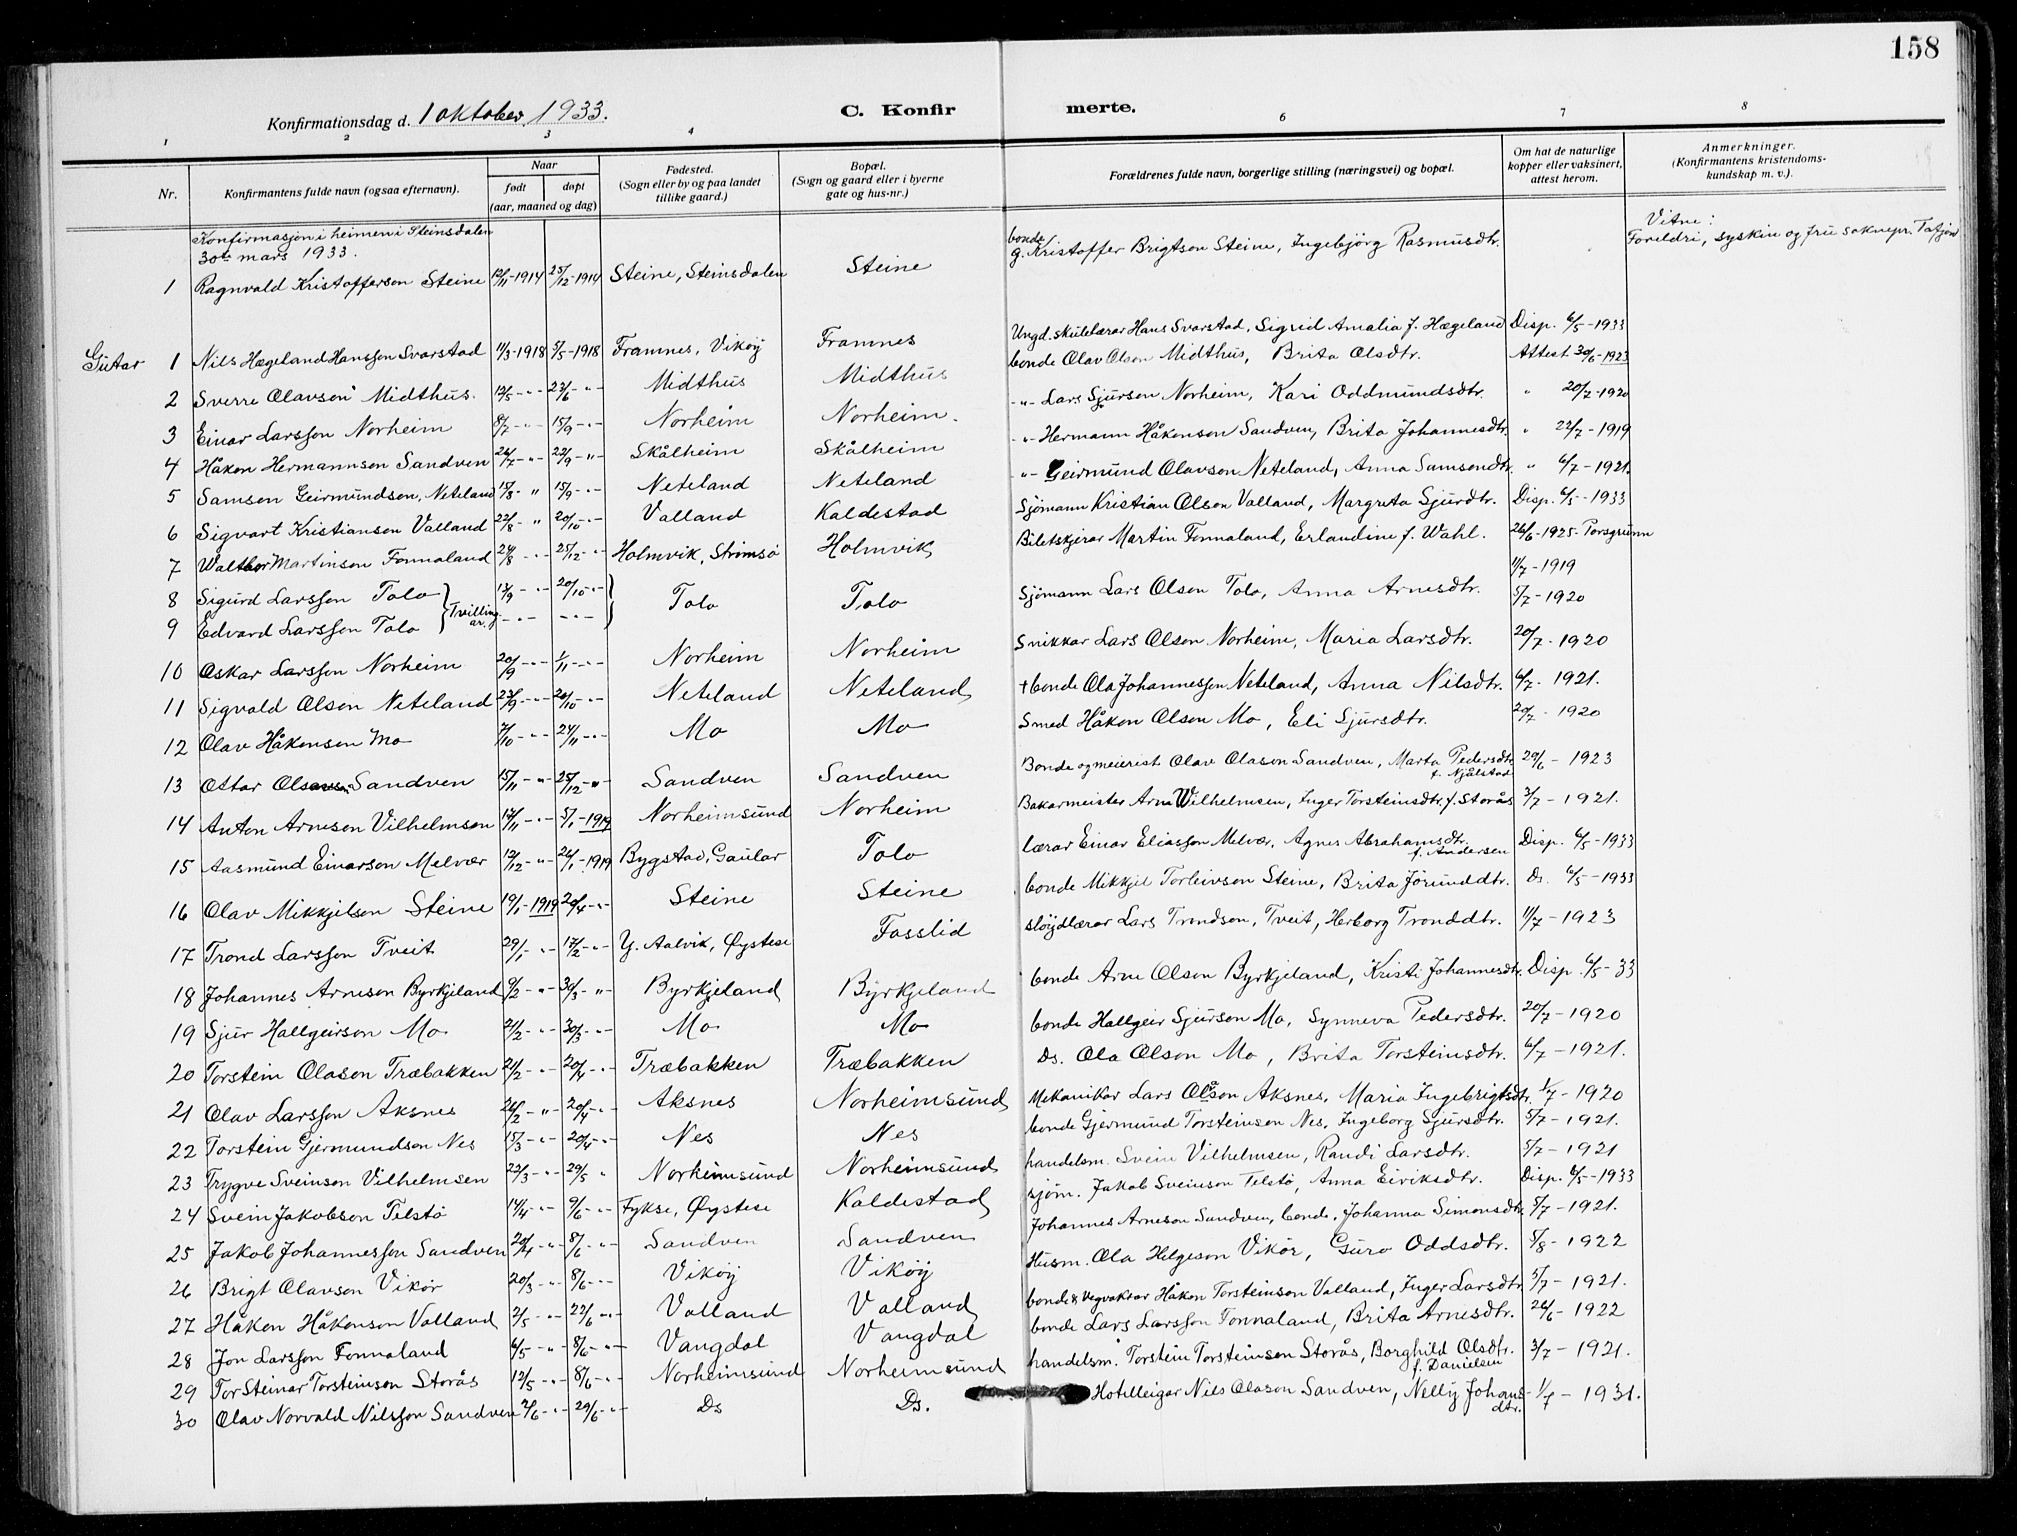 158
Konfirmationsdag d. 1 oktober 1933. C. Konfirmerte.
1 2 3 4 6 7 8
Nr. Konfirmantens fulde navn (ogsaa efternavn). Naar født døpt (aar, maaned og dag) Fødested. (Sogn eller by og paa landet tillike gaard.) Bopæl. (Sogn og gaard eller i byerne gate og hus-nr.) Forældrenes fulde navn, borgerlige stilling (næringsvei) og bopæl. Om hat de naturlige kopper eller vaksinert, attest herom. Anmerkninger. (Konfirmantens kristendoms-kundskap m. v.).
Konfirmasjon i heimen i Steinsdalen
30te mars 1933.
1 Ragnvald Kristofferson Steine 12/11-1914 25/12-1914 Steine, Steinsdalen Steine bonde g. Kristoffer Brigtson Steine, Ingebjörg Rasmusdtr. Vitne: Foreldri, syskin og fru soknepr. Tafjord
Gutar
1 Nils Hægeland Hansson Svarstad 11/3-1918 5/5-1918 Framnes, Viköy Framnes Ungd.skulelærar Hans Svarstad, Sigrid Amalia f. Hægeland Disp. 6/5-1933
2 Sverre Olavson Midthus 12/5-"- 23/6-"- Midthus Midthus bonde Olav Olson Midthus, Brita Olsdtr. Attest 30/6-1923
3 Einar Larsson Norheim 8/7-"- 15/9-"- Norheim Norheim -"- Lars Sjurson Norheim, Kari Oddmundsdtr. " 20/7-1920
4 Håkon Hermannson Sandven 26/7-"- 22/9-"- Skålheim Skålheim -"- Hermann Håkonson Sandven, Brita Johannesdtr. " 22/7-1919
5 Samson Geirmundson, Neteland 15/8-" 15/9-"- Neteland Neteland -"- Geirmund Olavson Neteland, Anna Samsondtr. " 6/7-1921.
6 Sigvart Kristianson Valland 22/8-" 20/10-"- Valland Kaldestad Sjömann Kristian Olson Valland, Margreta Sjurdtr. Disp. 6/5-1933
7 Walthor Martinson Fonnaland 24/8-"- 25/12-"- Holmvik, Strömsö Holmvik Biletskjerar Martin Fonnaland, Erlandine f. Wahl. 26/6-1925-Porsgrunn
8 Sigurd Larsson Tolo 13/9-"- 20/10-"- Tolo Tolo Sjömann Lars Olson Tolo, Anna Arnesdtr. 11/7-1919
9 Edvard Larsson Tolo Tvillingar. -"- -"- 5/7-1920
10 Oskar Larsson Norheim 20/9-"- 1/11-"- Norheim Norheim Snikkar Lars Olson Norheim, Maria Larsdtr. 20/7-1920
11 Sigvald Olson Neteland 23/9-"- 20/10-"- Neteland Neteland +bonde Ola Johannesson Neteland, Anna Nilsdtr. 6/7-1921.
12 Olav Håkonson Mo 7/10-"- 24/11-"- Mo Mo Smed Håkon Olson Mo, Eli Sjursdtr. 20/7-1920
13 Ottar Olavson Sandven 15/11-"- 25/12-"- Sandven Sandven Bonde og meierist Olav Olason Sandven, Marta Pedersdtr. f. Njålstad 29/6-1923
14 Anton Arneson Vilhelmsen 14/11-"- 5/1-1919 Norheimsund Norheim Bakarmeister Arne Wilhelmsen, Inger Torsteinsdtr. f. Storås 3/7-1921.
15 Aasmund Einarson Melvær 12/12-"- 26/1-1919 Bygstad, Gaular Tolo lærar Einar Eliasson Melvær, Agnes Abrahamsdtr. f. Andersen Disp. 6/5-1933
16 Olav Mikkjelson Steine 19/1-1919 20/4-"- Steine Steine bonde Mikkjel Torleivson Steine, Brita Jörunddtr. Ds. 6/5-1933
17 Trond Larsson Tveit 29/1-"- 17/2-"- Y. Aalvik, Øystese Fosslid slöydlærar Lars Trondson, Tveit, Herborg Tronddtr. 11/7-1923
18 Johannes Arneson Byrkjeland 9/2-"- 30/3-"- Byrkjeland Byrkjeland bonde Arne Olson Byrkjeland, Kristi Johannesdtr. Disp 6/5-33
19 Sjur Hallgeirson Mo 21/2-"- 30/3-"- Mo Mo bonde Hallgeir Sjurson Mo, Synneva Pedersdtr. 20/7-1920
20 Torstein Olason Træbakken 24/2-"- 20/4-"- Træbakken Træbakken Ds. Ola Olson Mo, Brita Torsteinsdtr. 6/7-1921.
21 Olav Larsson Aksnes 26/2-"- 20/4-"- Aksnes Norheimsund Mekanikar Lars Olson Aksnes, Maria Ingebrigtsdtr. 1/7-1920
22 Torstein Gjermundson Nes 15/3-"- 20/4-"- Nes Nes bonde Gjermund Torsteinson Nes, Ingeborg Sjursdtr. 5/7-1921.
23 Trygve Sveinson Vilhelmsen 22/3-"- 29/5 " Norheimsund Norheimsund handelsm. Svein Vilhelmsen, Randi Larsdtr. 5/7-1921
24 Svein Jakobson Telstö 14/4-"- 9/6-"- Fykse, Øystese Kaldestad sjöm. Jakob Sveinson Telstö, Anna Eiriksdtr. Disp. 6/5-1933
25 Jakob Johannesson Sandven 20/4-"- 8/6-"- Sandven Sandven Johannes Arneson Sandven, bonde. Johanna Simonsdtr. 5/7-1921.
26 Brigt Olavson Vikör 20/3-"- 8/6-"- Viköy Viköy Husm. Ola Helgeson Vikör, Guro Oddsdtr. 5/8-1922
27 Håkon Håkonson Valland 2/5-"- 22/6-"- Valland Valland bonde & vegvaktar Håkon Torsteinson Valland, Inger Larsdtr. 5/7-1921.
28 Jon Larsson Fonnaland 6/5-"- 8/6-"- Vangdal Vangdal bonde Lars Larsson Fonnaland, Brita Arnesdtr. 26/6-1922
29 Tor Steinar Torsteinson Storås 12/5-"- 8/6-"- Norheimsund Norheimsund handelsm. Torstein Torsteinson Storås, Borghild Olsdtr. f. Danielsen 3/7-1921.
30 Olav Norvald Nilsson Sandven 2/6-"- 29/6-"- Ds Ds. Hotelleigar Nils Olason Sandven, Nelly Johansdtr. 1/7-1931.